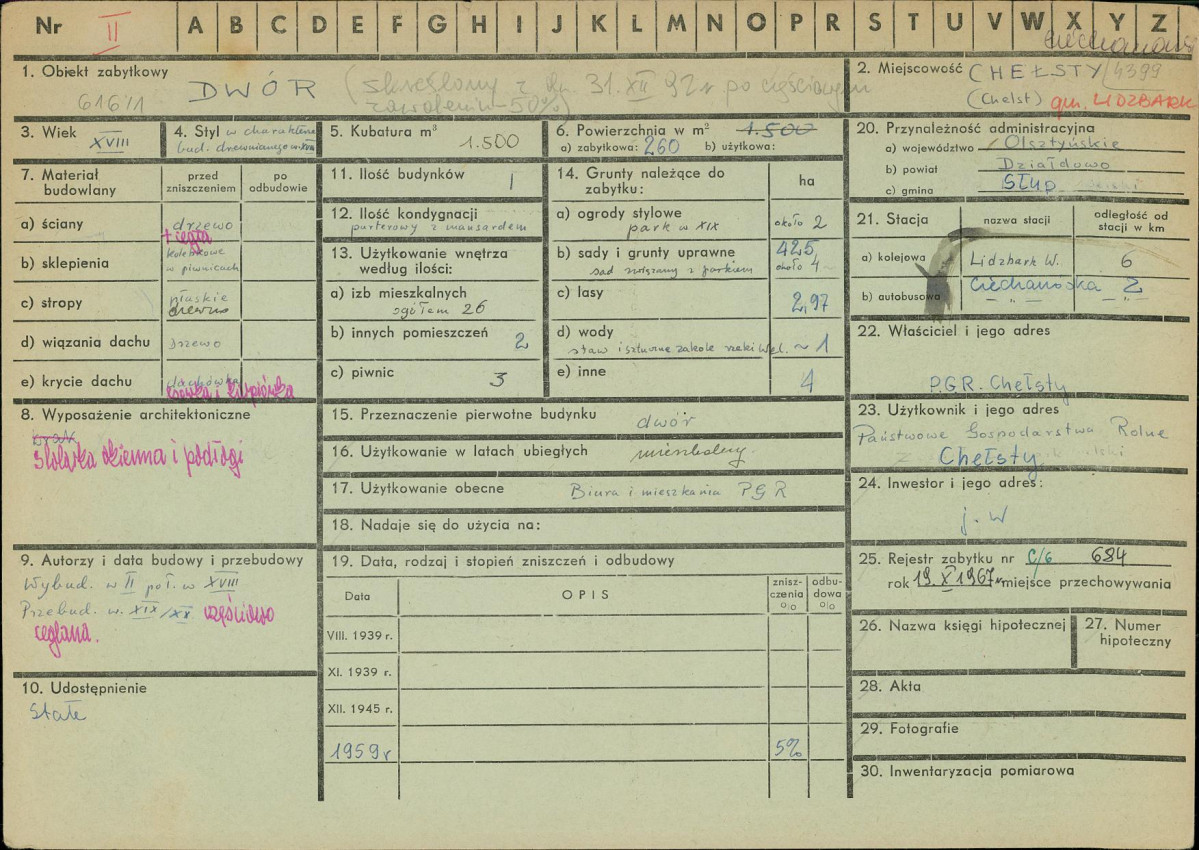 Nr II A B C D E F G H I J K L M N O P R S T U V W X Y Z
1. Obiekt zabytkowy
616/1 DWÓR (skreślony z 31.XII 92 r po częściowym
zawaleniu - 50%)
2. Miejscowość CHEŁSTY/4399
(Chełst) gm. LIDZBARK
3. Wiek
XVIII
4. Styl w charakterze
bud. drewnianego w XVIII
5. Kubatura m³
1.500
6. Powierzchnia w m² 1.500
a) zabytkowa: 260 b) użytkowa:
7. Materiał budowlany
przed zniszczeniem
po odbudowie
a) ściany drzewo
+ cegła
b) sklepienia kolebkowe
w piwnicach
c) stropy płaskie
drewno
d) wiązania dachu drzewo
e) krycie dachu dachówka
esówka i karpiówka
8. Wyposażenie architektoniczne
brak
Stolarka okienna i podłogi
9. Autorzy i data budowy i przebudowy
Wybud. w II poł. w XVIII
Przebud. w. XIX/XX częściowo
ceglana.
10. Udostępnienie
Stałe
11. Ilość budynków 1
12. Ilość kondygnacji
parterowy z mansardem
13. Użytkowanie wnętrza
według ilości:
a) izb mieszkalnych
ogółem 26
b) innych pomieszczeń 2
c) piwnic 3
14. Grunty należące do
zabytku: ha
a) ogrody stylowe
park w XIX około 2
b) sady i grunty uprawne 425
sad związany z parkiem około 4
c) lasy 2,97
d) wody
staw i sztuczne zakole rzeki Wel. ~ 1
e) inne 4
15. Przeznaczenie pierwotne budynku dwór
16. Użytkowanie w latach ubiegłych mieszkalny
17. Użytkowanie obecne Biura i mieszkania PGR
18. Nadaje się do użycia na:
19. Data, rodzaj i stopień zniszczeń i odbudowy
Data OPIS zniszczenia % odbudowa %
VIII. 1939 r.
XI. 1939 r.
XII. 1945 r.
1959 r 5%
20. Przynależność administracyjna
a) województwo Olsztyńskie
b) powiat Działdowo
c) gmina Słup
21. Stacja nazwa stacji odległość od
stacji w km
a) kolejowa Lidzbark W. 6
b) autobusowa Ciechanówka 2
— „ — — „ —
22. Właściciel i jego adres
P.G.R. Chełsty
23. Użytkownik i jego adres
Państwowe Gospodarstwo Rolne
Chełsty
24. Inwestor i jego adres:
j. w
25. Rejestr zabytku nr C/6 684
rok 19.X 1967 r miejsce przechowywania
26. Nazwa księgi hipotecznej
27. Numer
hipoteczny
28. Akta
29. Fotografie
30. Inwentaryzacja pomiarowa